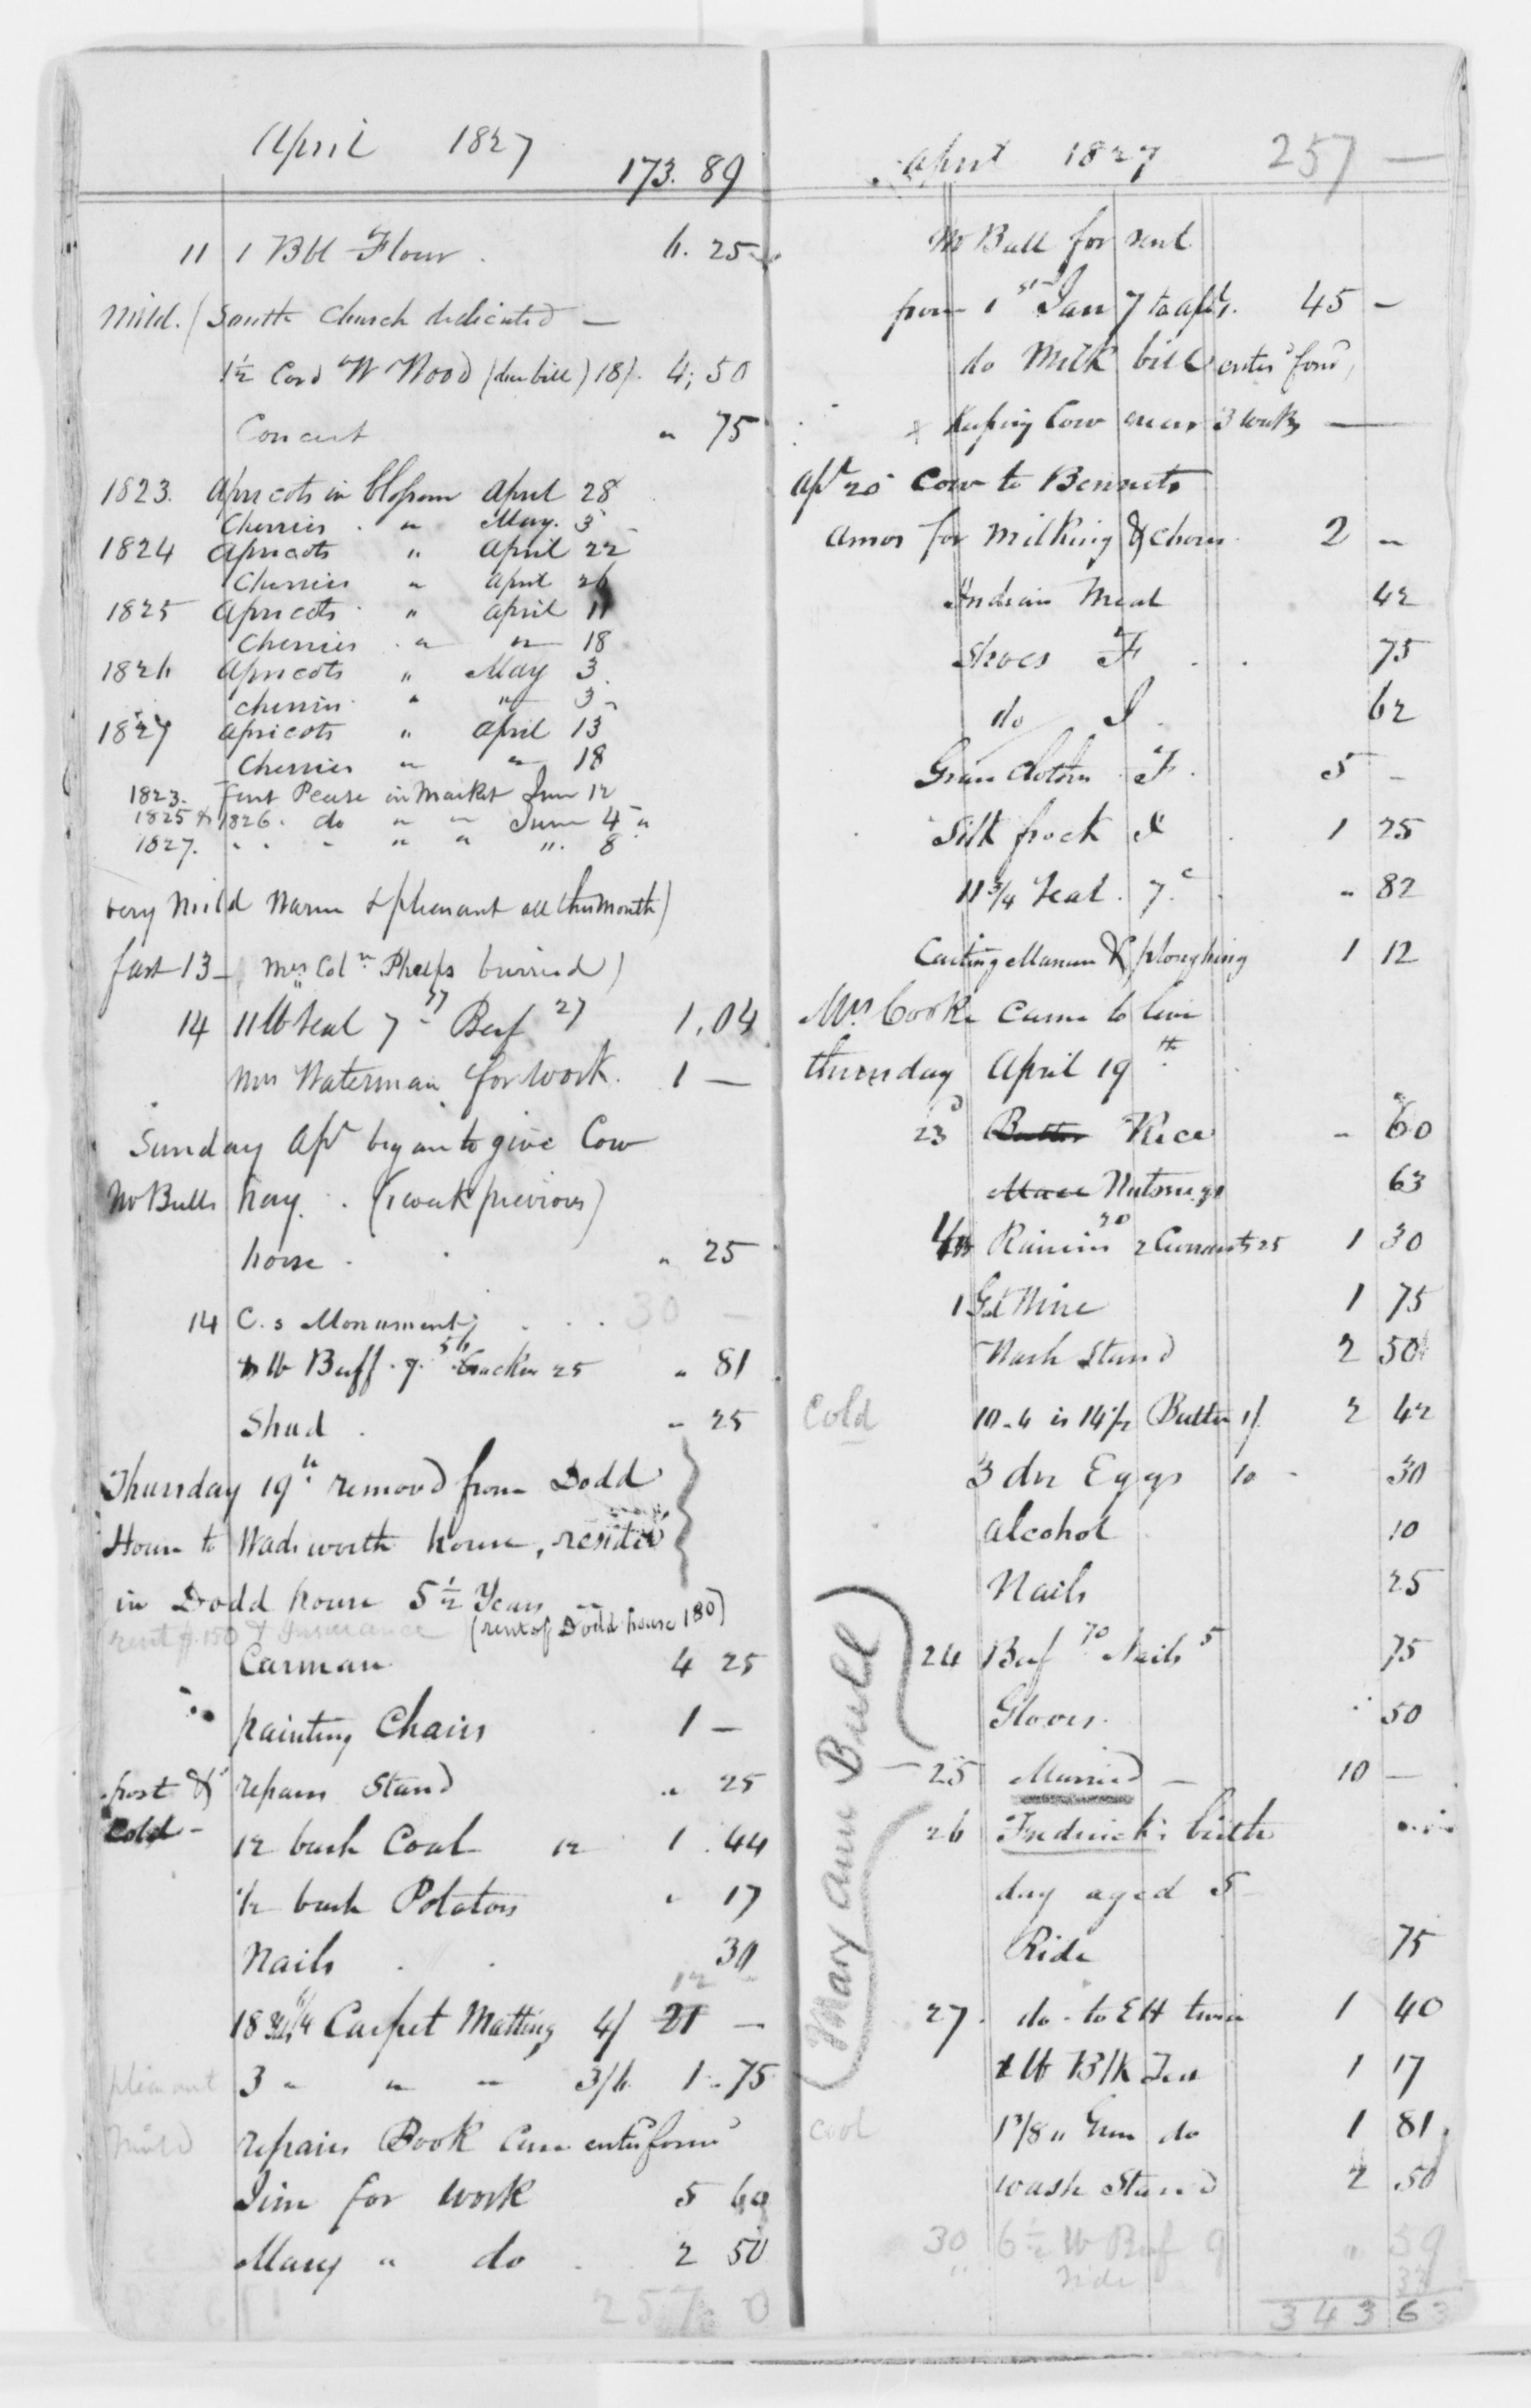 April 1827
173. 89
11 1 Bbl Flour . 6. 25
Mild. / South Church dedicated —
1½ Cord W Wood (due bill) 18/. 4; 50
Concert " 75
1823. Apricots in blossom April 28
Cherries . " May. 3
1824 Apricots " April 22
Cherries " April 26
1825 Apricots . " April 11
Cherries . " " 18
1826 Apricots " May 3.
Cherries . " " 3
1827 Apricots " April 13
Cherries " " 18
1823. First Pease in Market June 12
1825 & 1826. do " " June 4 "
1827. . . - " " ". 8
very Mild Warm & pleasant all this month)
fast 13 — Mrs Coln Phelps burried)
14 11 lb Veal 7 - 77 Beef 27 1.04
Mrs Waterman for work. 1 —
Sunday Apl began to give Cow
Mr Bulls hay. . (1 week previous)
horse . " 25
14 C.s Monument . . . 30 —
8 lb Beeff . 7. 56 Cracker 25 " 81
Shad . " 25
Thursday 19th. removd from Dodd
House to Wadsworth house, resided
in Dodd house 5½ Years —
rent $.150 & Insurance (rent of Dodd house 180)
Carman 4 25
painting Chairs 1 —
frost & repairs Stand " 25
Cold - 12 bush Coal 12 1 . 44
½ bush Potatoes " 17
Nails . . 30
12
18 Carpet Matting 4/ 21 —
pleasant 3 " " " 3/6 1 - 75
Mild repairs Book Case enterd forwd
Jim for work 5 60
Mary " do . 2 50
257 0
April 1827 257 —
Mr Bull for rent
from 1st Jan 7 to apl. 45 —
do Milk bill enterd forwd,
x keeping Cow 3 weeks —
Apl 20 Cow to Bennets
Amos for Milking & chores . 2 "
Indian Meal 42
Shoes F . . 75
do J . 62
Green Clothes F . 5 -
Silk frock J . 1 25
11¾ Veal . 7c . " 82
Carting Manure & ploughing 1 12
Mrs Cooke came to live
thursday April 19th
23d Butter Rice - 60
Mace Nutmegs 63
Raisins 2 Currants 25 1 30
1 Gal Wine 1 75
Wash Stand 2 50
Cold 10-4 is 14½ Butter 1/. 2 42
3 dz Eggs 10 - 30
Alcohol 10
Nails 25
24 Beef 70 Nails 5 75
Gloves . 50
25 Married — 10 —
(Mary Ann Bull)
26 Fredericks birth
day aged 5
Ride 75
27. do - to EH twice 1 40
lb Blk Tea 1 17
cool 1⅞ " Green do 1 81
wash Stand 2 50
30 6½ lb Beef 9 " 59
" ride
343 63